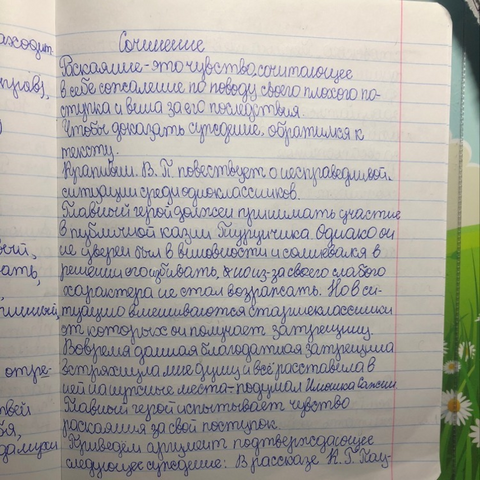 Сочинение
Раскаяние - это чувство, сочитающее
в себе сожаление по поводу своего плохого по-
ступка и вина за его последствия.
Чтобы доказать суждение, обратимся к
тексту.
Крапивин. В. П повествует о несправедливой
ситуации среди одноклассников.
Главный герой должен принимать участие
в публичной казни Турунчика. Однако он
не уверен был в виновности и сомневался в
решении его избивать, но из-за своего слабого
характера не стал возражать. Но в си-
туацию вмешиваются старшеклассники
от которых он получает затрещину.
Вовремя данная благодатная затрещина
встряхнула мне душу и всё расставила в
ней на нужные места - подумал
Главный герой испытывает чувство
раскаяния за свой поступок.
Приведём аргумент подтверждающее
следующее суждение: В рассказе К. Г. Пау-
аходит
прав),
)
ый,
ать,
,
отре-
твей
бя,